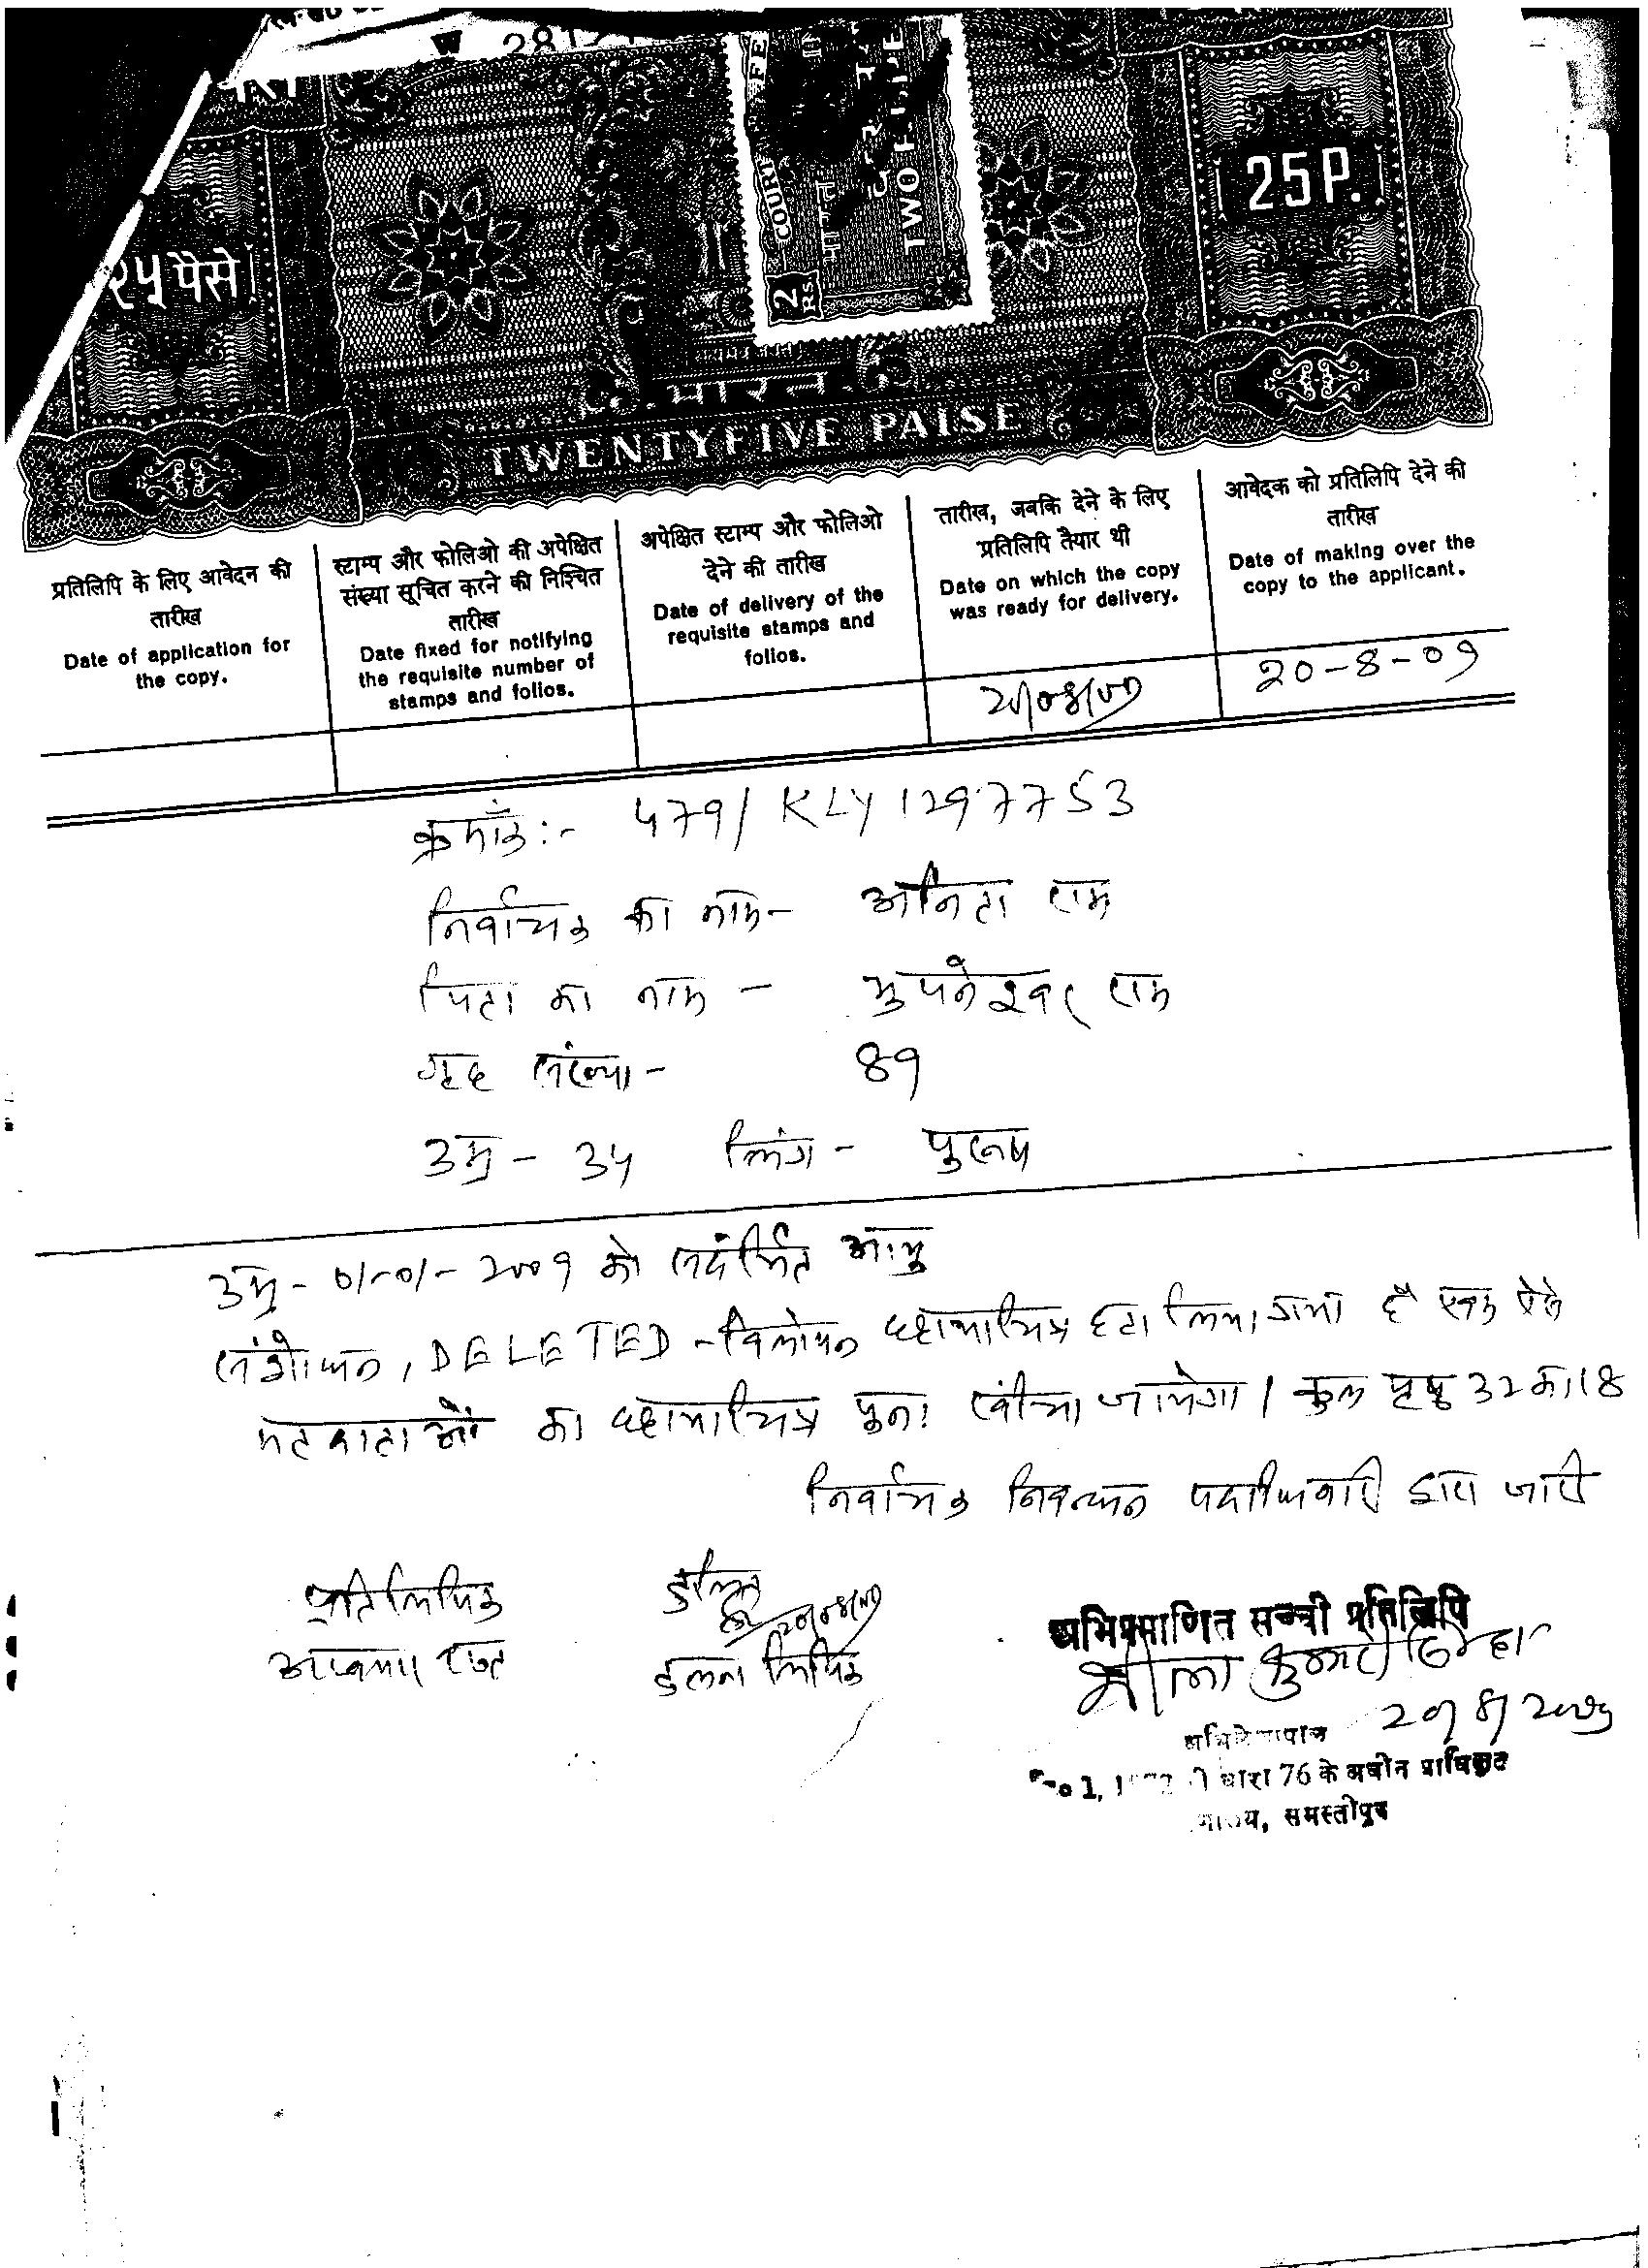 W 2812
COURT FEE
भारत
TWO RUPEES
2 RS.
२५ पैसे
25 P.
सत्यमेव जयते
भारत
TWENTYFIVE PAISE
प्रतिलिपि के लिए आवेदन की
तारीख
Date of application for
the copy.
स्टाम्प और फोलिओ की अपेक्षित
संख्या सूचित करने की निश्चित
तारीख
Date fixed for notifying
the requisite number of
stamps and folios.
अपेक्षित स्टाम्प और फोलिओ
देने की तारीख
Date of delivery of the
requisite stamps and
folios.
तारीख, जबकि देने के लिए
प्रतिलिपि तैयार थी
Date on which the copy
was ready for delivery.
आवेदक को प्रतिलिपि देने की
तारीख
Date of making over the
copy to the applicant.
20-8-09
क्रमाँक:- 479/ KLY1297753
निर्वाचक का नाम- अनिता राम
पिता का नाम - भुपनेश्वर राम
गृह संख्या- 89
उम्र - 34 लिंग - पुरूष
उम्र - 01-01-2009 को संदर्भित आयु
संशोधन, DELETED - विलोपन छायाचित्र हटा लिया गया है
मतदाताओं का छायाचित्र पुनः खींचा जायेगा। कुल पृष्ठ 32 का 18
निर्वाचक निबन्धन पदाधिकारी द्वारा जारी
प्रतिलिपिक
तुलना लिपिक
अभिप्रमाणित सच्ची प्रतिलिपि
20/8/2009
धारा 76 के अधीन प्राधिकृत
समस्तीपुर